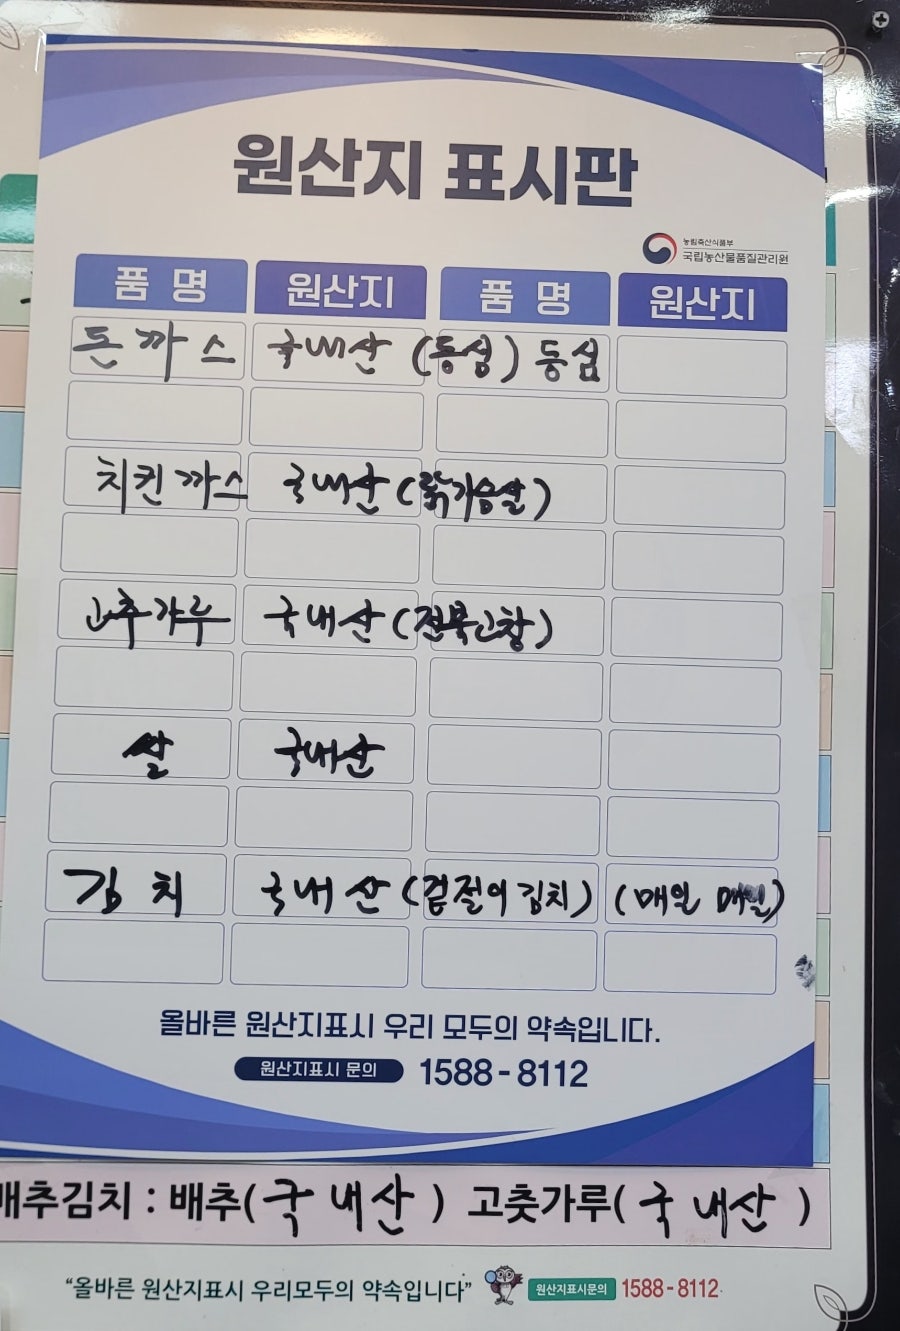 원산지 표시판
농림축산식품부
국립농산물품질관리원
품 명 원산지 품 명 원산지
돈까스 국내산 (등심) 등심
치킨까스 국내산 (닭가슴살)
고추가루 국내산 (전북고창)
쌀 국내산
김치 국내산 (겉절이 김치) (매일 매일)
올바른 원산지표시 우리 모두의 약속입니다.
원산지표시 문의 1588-8112
배추김치 : 배추( 국내산 ) 고춧가루( 국내산 )
“올바른 원산지표시 우리모두의 약속입니다” 원산지표시문의 1588-8112